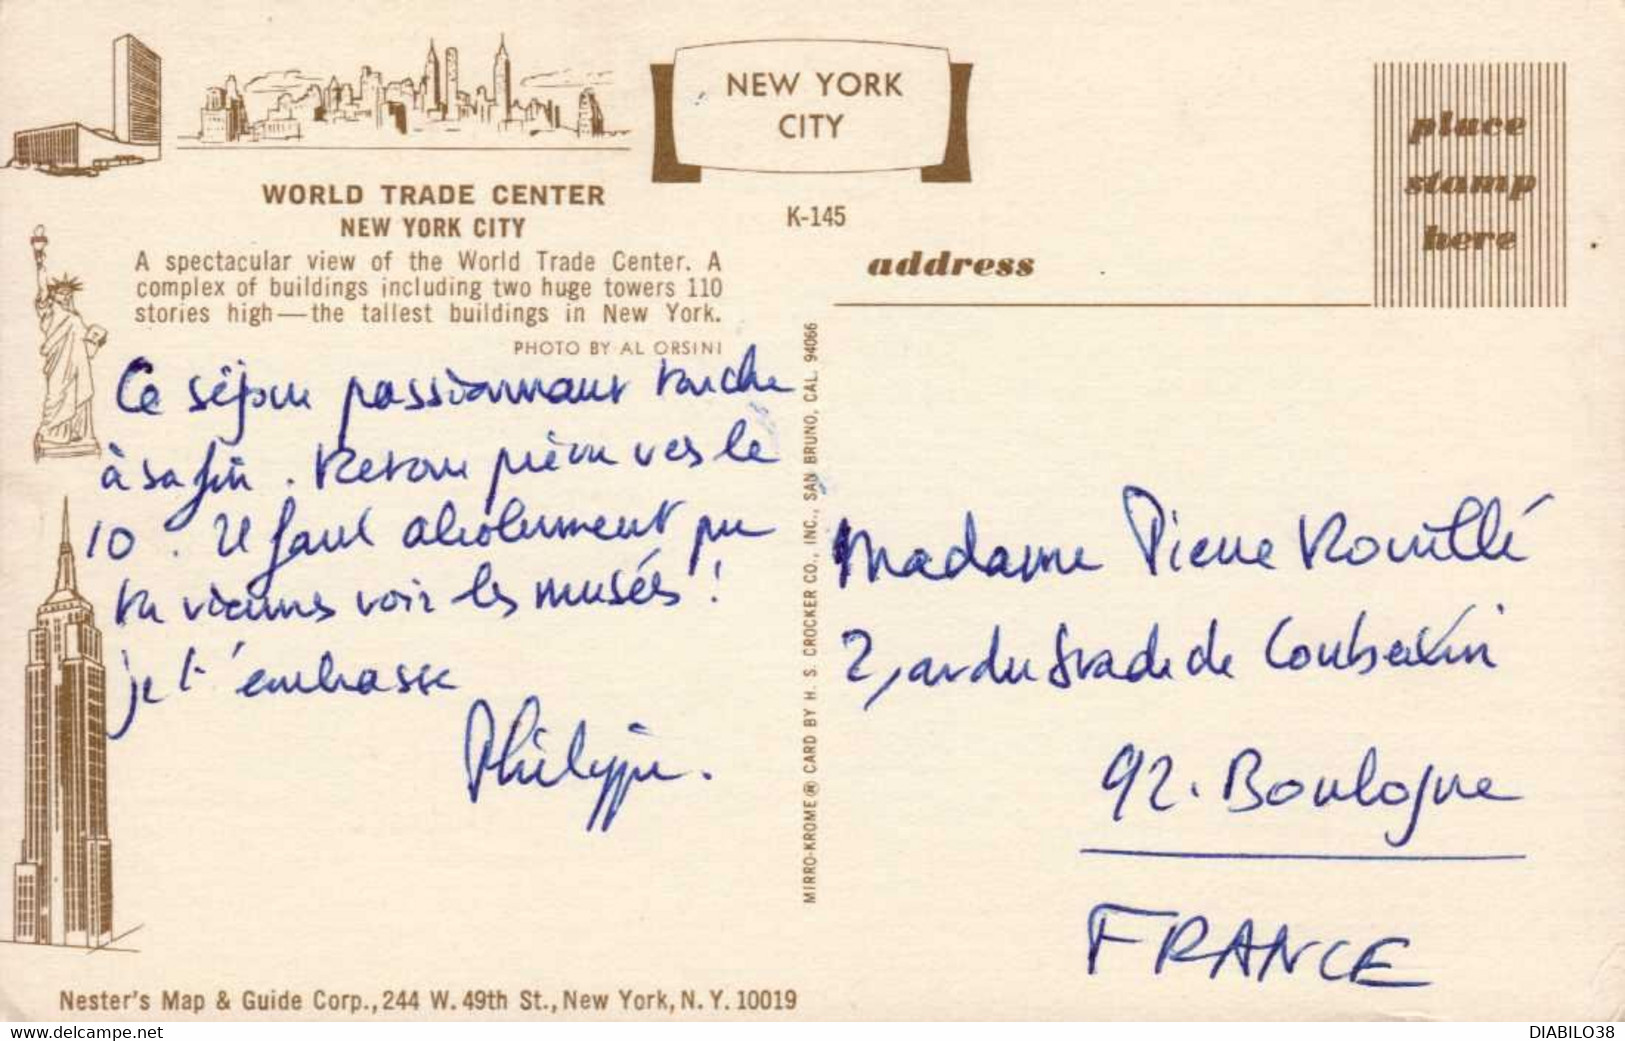 NEW YORK
CITY
place
stamp
here
WORLD TRADE CENTER
NEW YORK CITY
K-145
A spectacular view of the World Trade Center. A
complex of buildings including two huge towers 110
stories high—the tallest buildings in New York.
PHOTO BY AL ORSINI
address
Ce séjour passionnant touche
à sa fin. Retour prévu vers le
10. Il faut absolument que
tu viennes voir les musées!
je t'embrasse
Philippe.
MIRRO-KROME® CARD BY H. S. CROCKER CO., INC., SAN BRUNO, CAL. 94066
Madame Pierre Rouillé
2, av du Stade de Coubertin
92. Boulogne
FRANCE
Nester's Map & Guide Corp., 244 W. 49th St., New York, N. Y. 10019
delcampe.net
DIABILO38